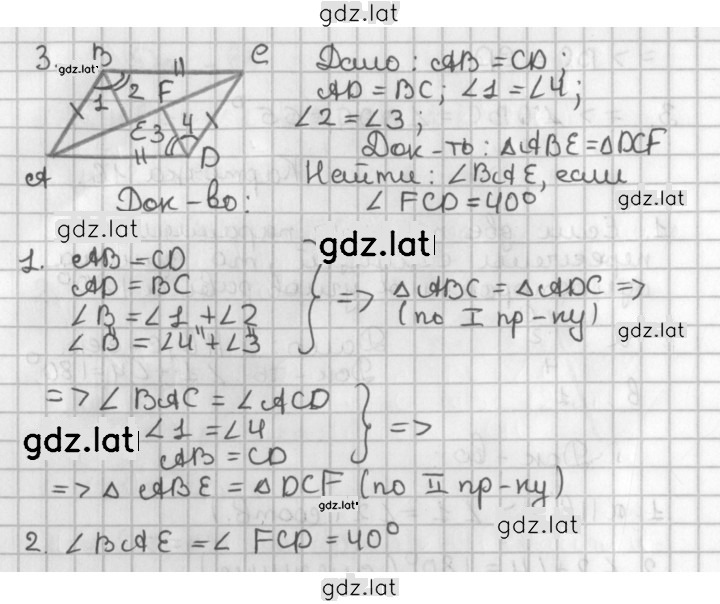 gdz.lat
3. gdz.lat B C
Дано: AB = CD;
1 2 F
AD = BC; ∠1 = ∠4;
E 3 4
∠2 = ∠3;
A D
Док-ть: △ABE = △DCF
Найти: ∠BAE, если
∠FCD = 40°
gdz.lat
Док-во:
gdz.lat
gdz.lat
1. AB = CD
AD = BC
∠B = ∠1 + ∠2
∠B = ∠4 + ∠3
=> △ABC = △ADC =>
(по I пр-ку)
gdz.lat
=> ∠BAC = ∠ACD
∠1 = ∠4
AB = CD
=>
gdz.lat
=> △ABE = △DCF (по II пр-ку)
gdz.lat
gdz.lat
2. ∠BAE = ∠FCD = 40°
gdz.lat